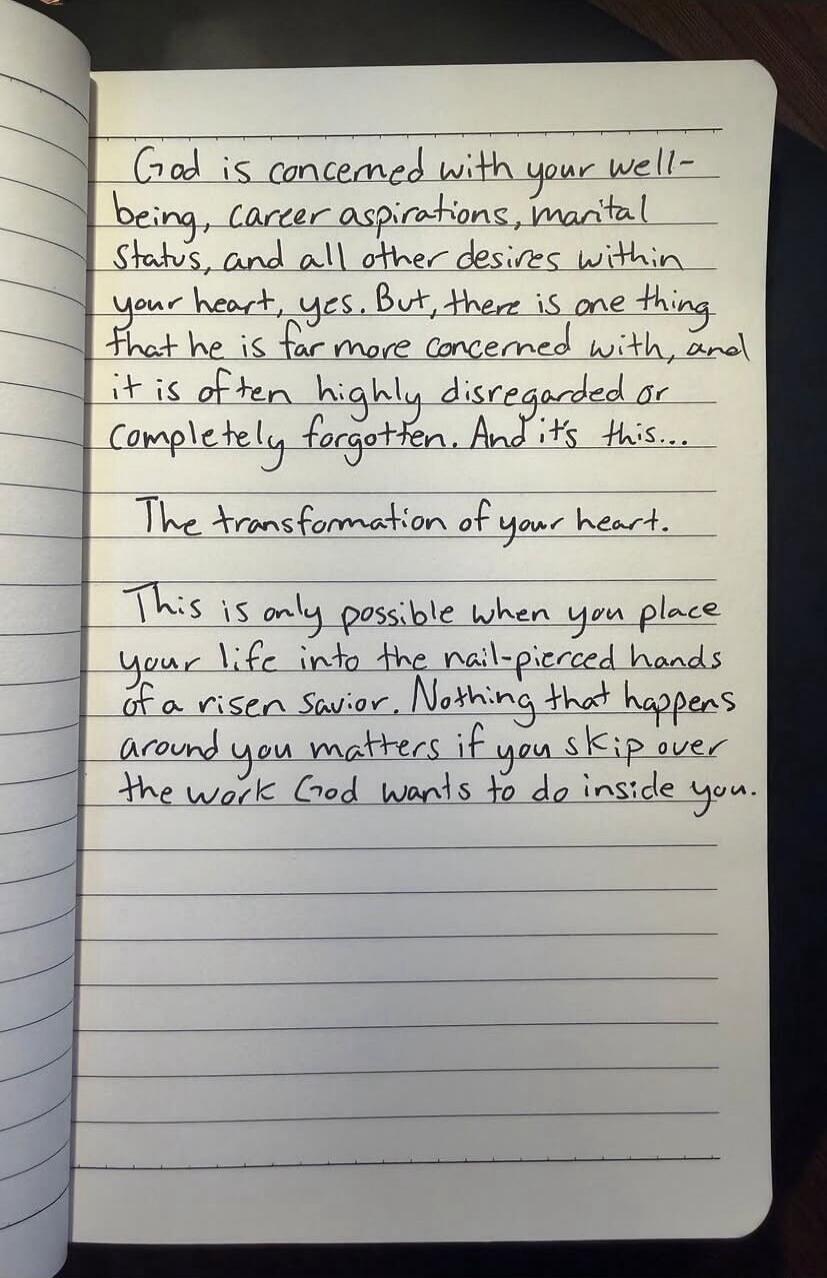 God is concerned with your well-
being, career aspirations, marital
status, and all other desires within
your heart, yes. But, there is one thing
that he is far more concerned with, and
it is often highly disregarded or
completely forgotten. And it's this...
The transformation of your heart.
This is only possible when you place
your life into the nail-pierced hands
of a risen savior. Nothing that happens
around you matters if you skip over
the work God wants to do inside you.